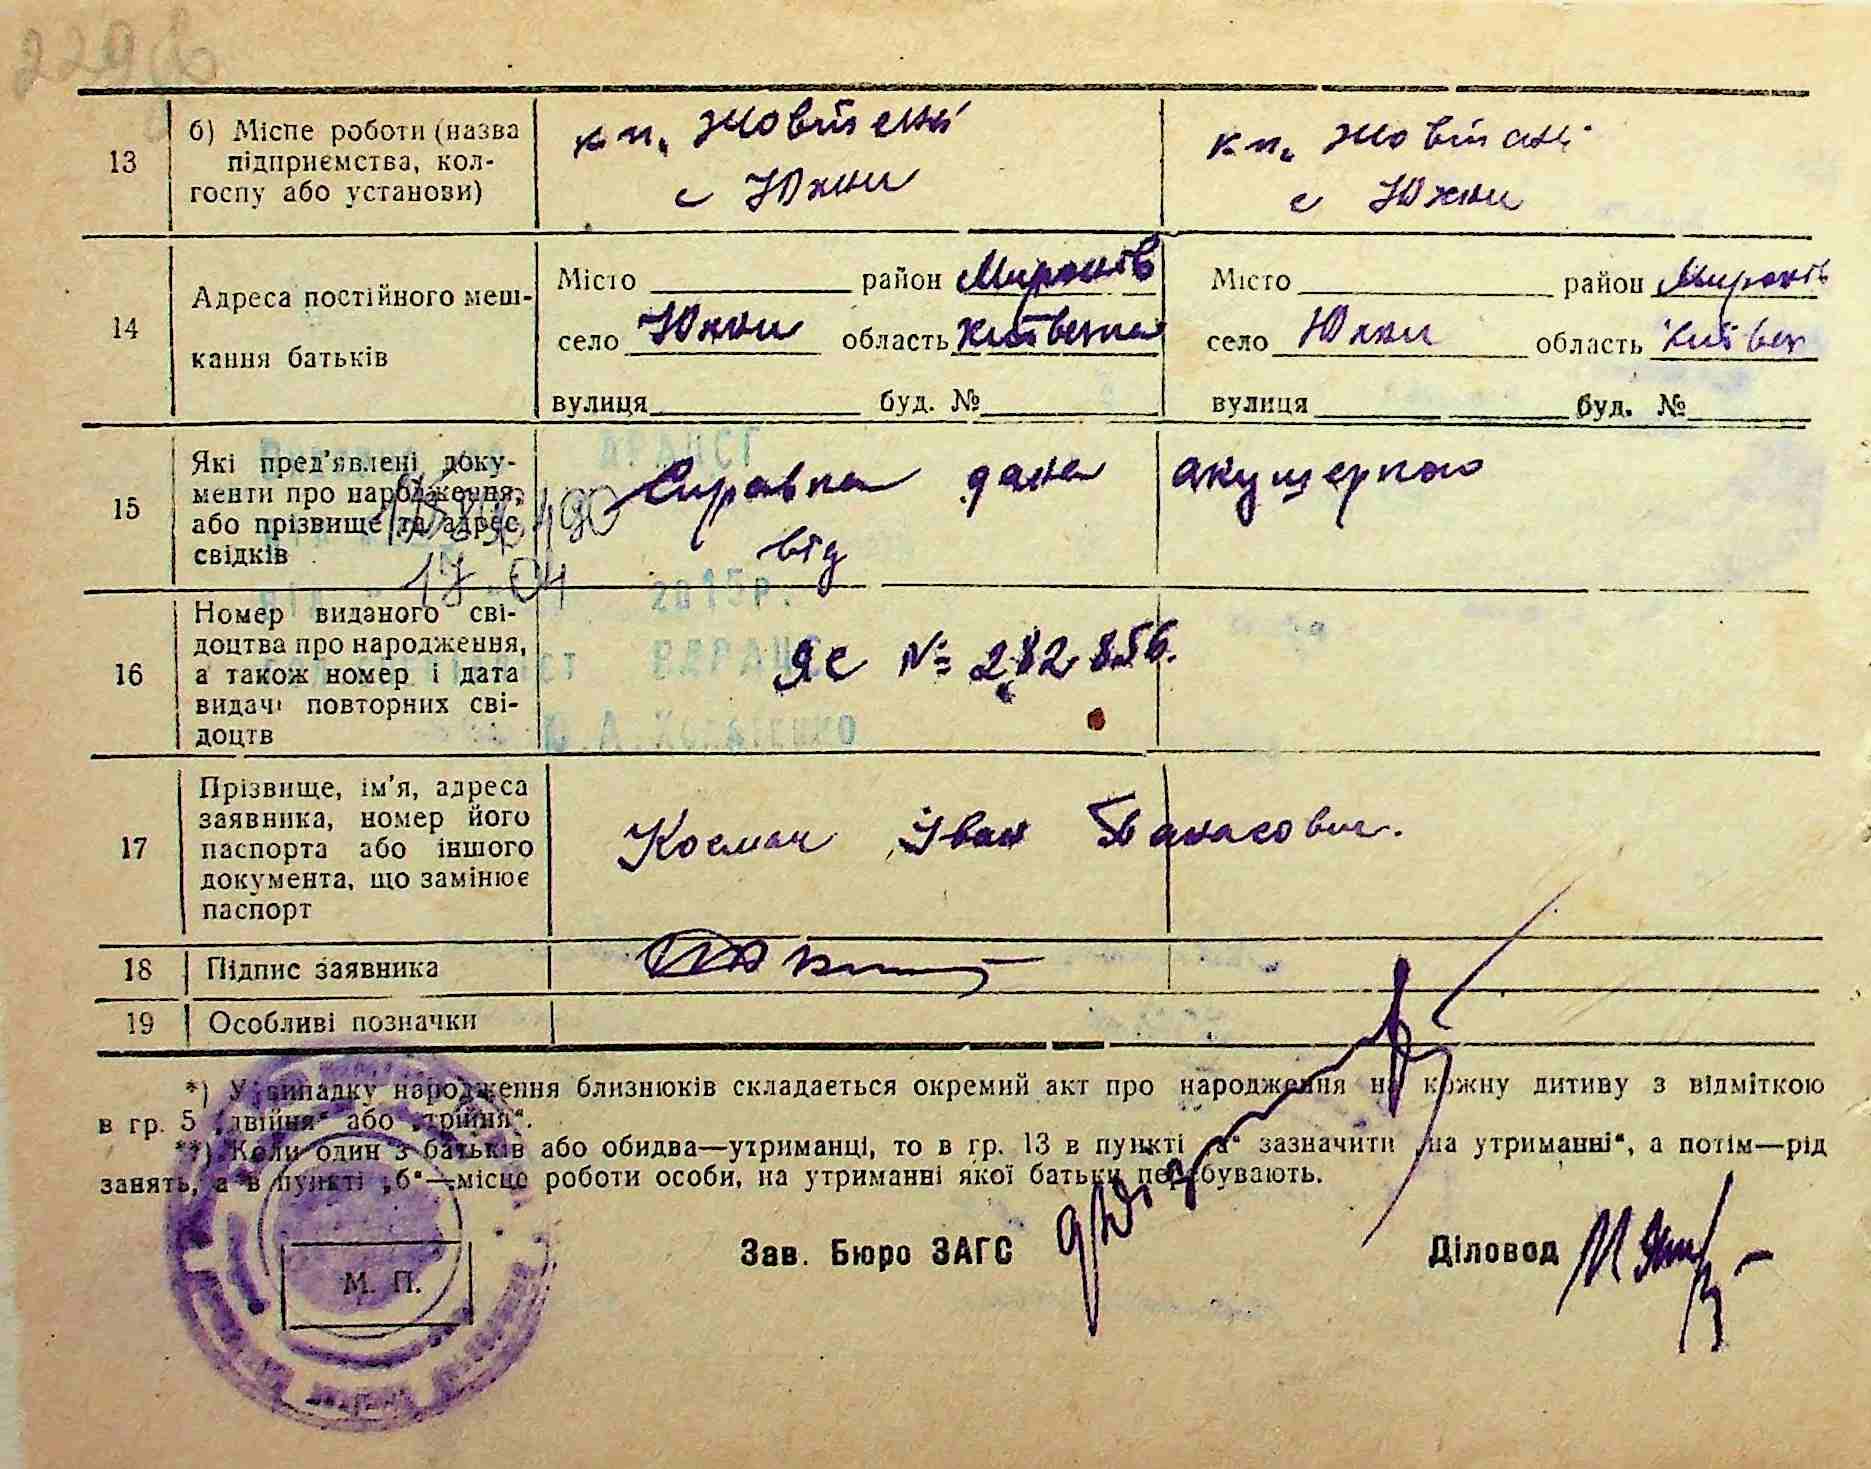 13
б) Місце роботи (назва
підприємства, кол-
госпу або установи)
кп. Жовтень
с Юхни
кп. Жовтень
с Юхни
14
Адреса постійного меш-
кання батьків
Місто район Миронів
село Юхни область Київська
вулиця буд. №
Місто район Миронів
село Юхни область Київсь
вулиця буд. №
15
Які пред'явлені доку-
менти про народження,
або прізвище та адрес
свідків
Справка дана акушеркою
від
17 04 2015р.
16
Номер виданого сві-
доцтва про народження,
а також номер і дата
видачі повторних сві-
доцтв
ЯС № 282856.
17
Прізвище, ім'я, адреса
заявника, номер його
паспорта або іншого
документа, що замінює
паспорт
Космач Іван Панасович.
18 Підпис заявника
19 Особливі позначки
*) У випадку народження близнюків складається окремий акт про народження на кожну дитину з відміткою
в гр. 5 „двійня“ або „трійня“.
**) Коли один з батьків або обидва—утриманці, то в гр. 13 в пункті „а“ зазначити „на утриманні“, а потім—рід
занять, а в пункті „б“—місце роботи особи, на утриманні якої батьки перебувають.
Зав. Бюро ЗАГС
Діловод
М. П.